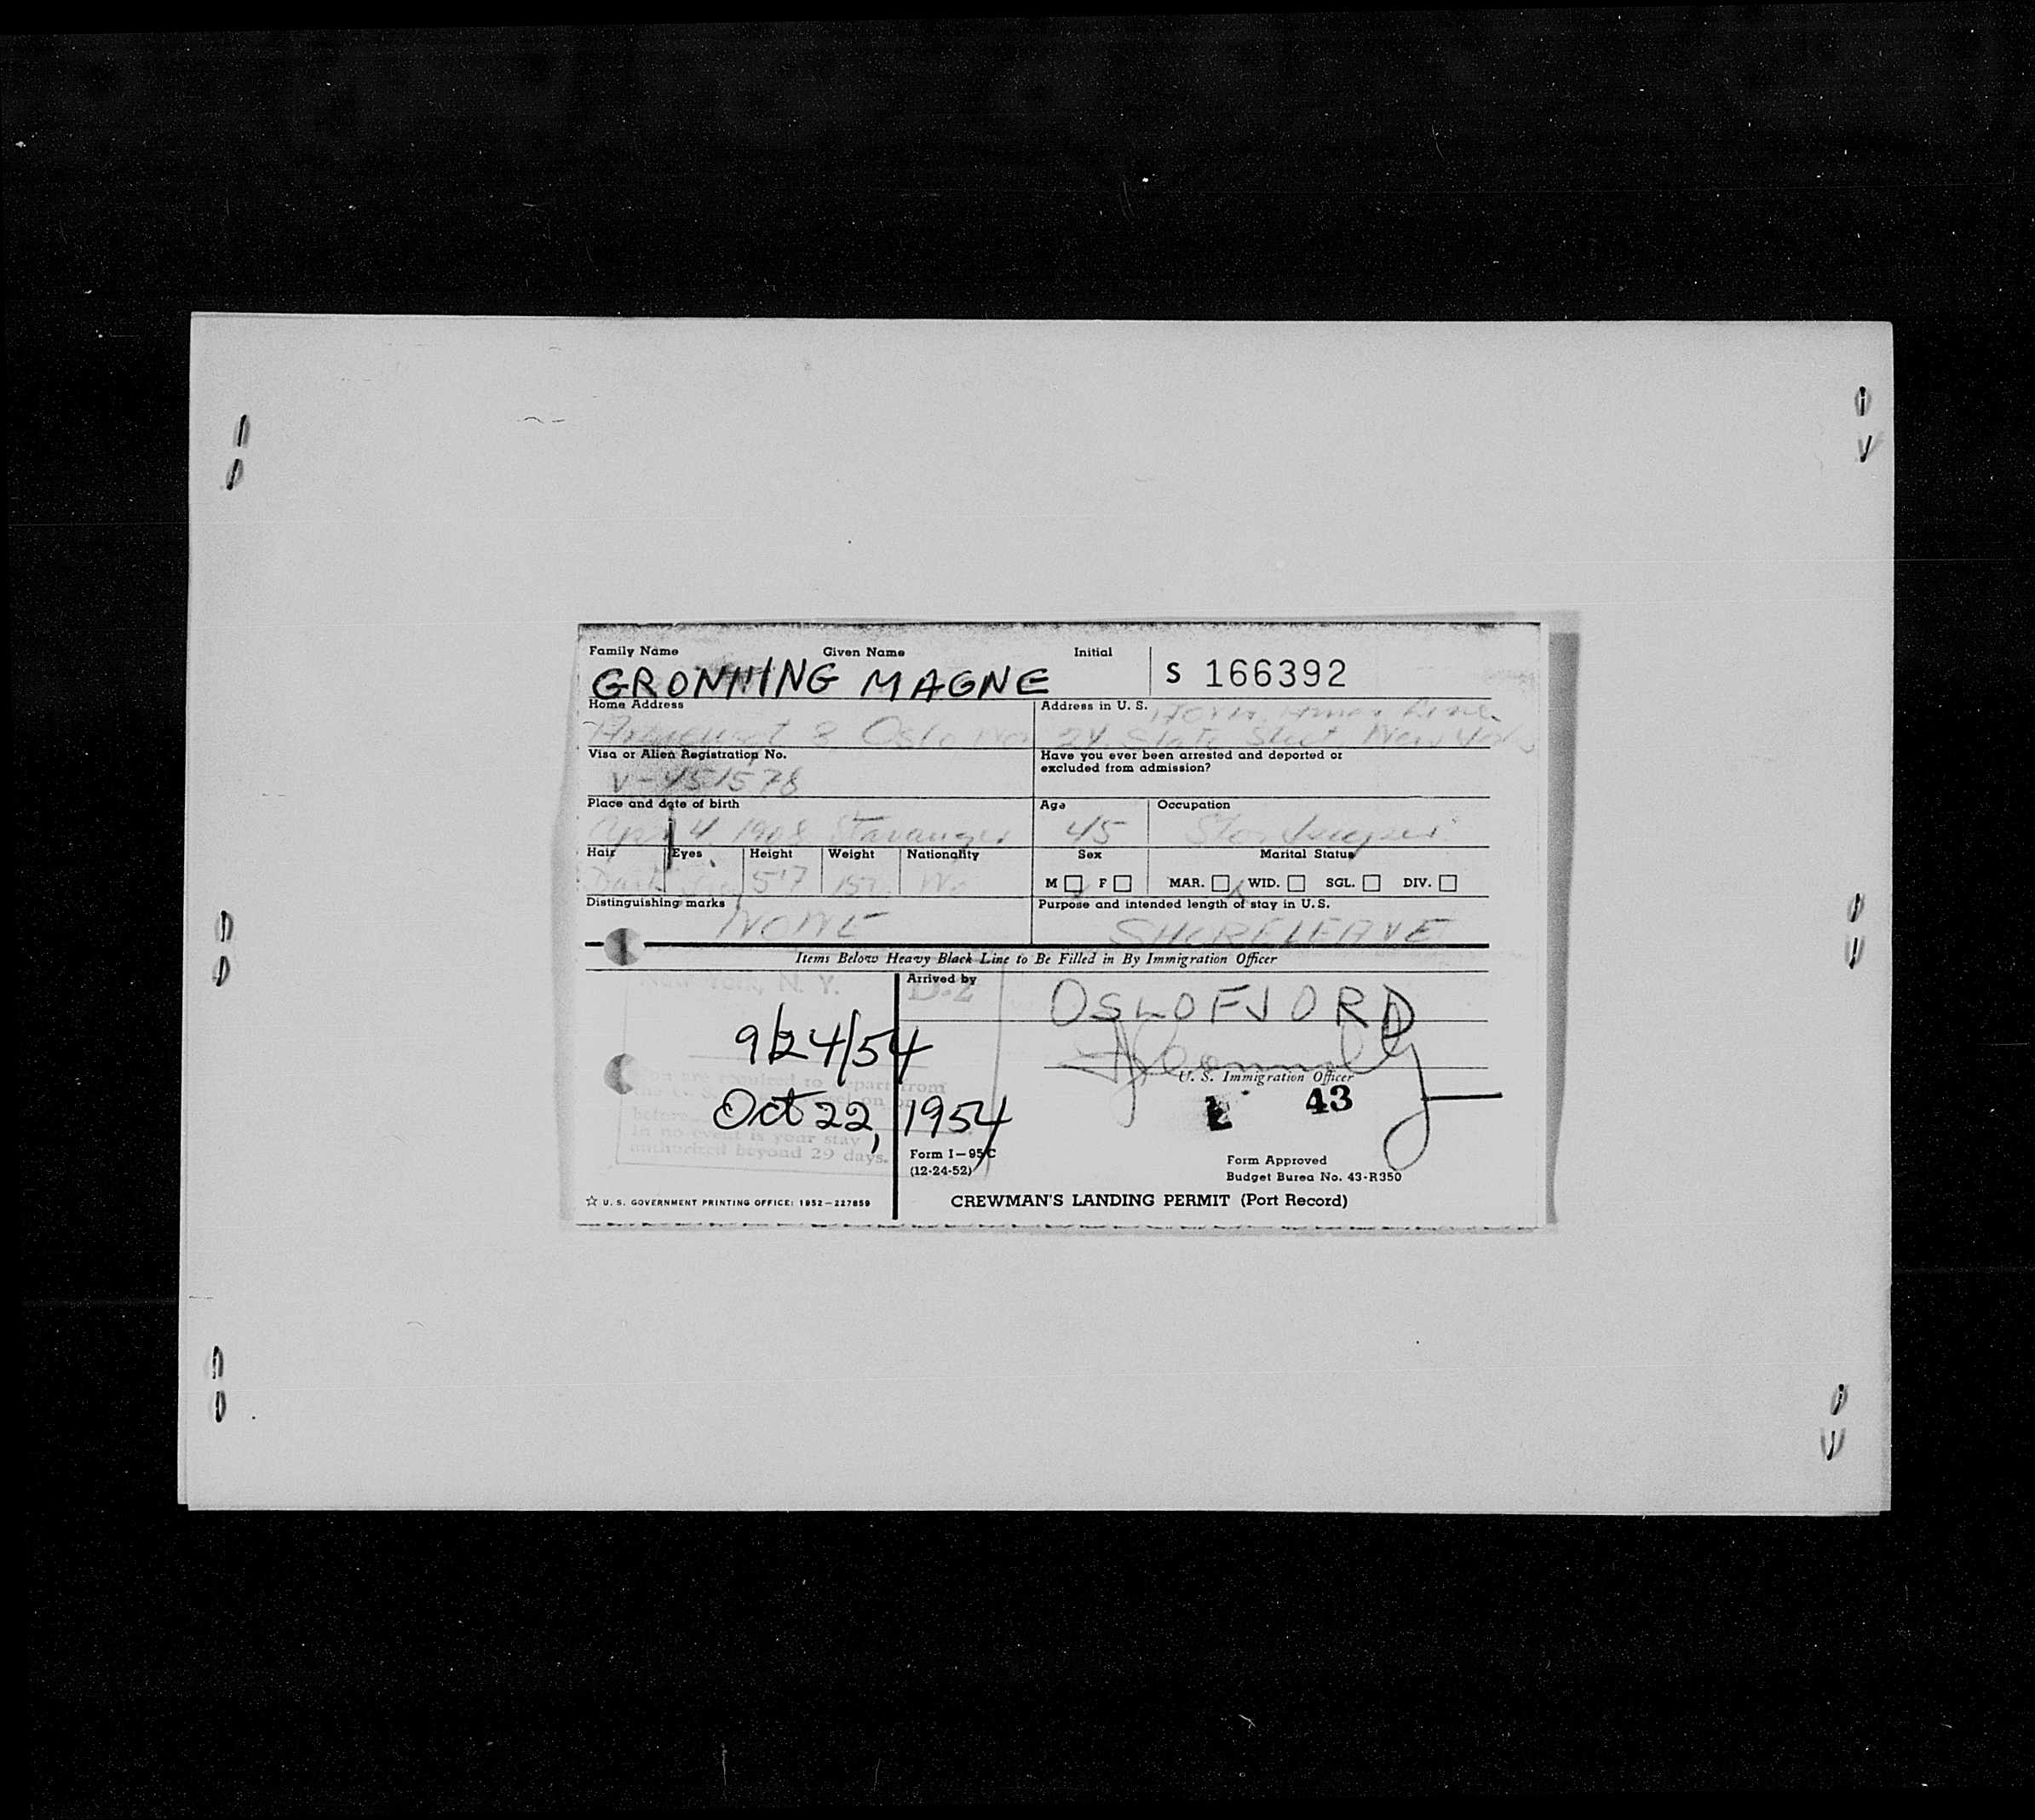 Family Name Given Name Initial
GRONNING MAGNE S 166392
Home Address Address in U. S.
8 Oslo 24 State Street New York
Visa or Alien Registration No. Have you ever been arrested and deported or
excluded from admission?
V-451578
Place and date of birth Age Occupation
Apr 4 1908 Stavanger 45 Storekeeper
Hair Eyes Height Weight Nationality Sex Marital Status
Dark 5'7 No M F MAR. WID. SGL. DIV.
Distinguishing marks Purpose and intended length of stay in U. S.
NONE SHORELEAVE
Items Below Heavy Black Line to Be Filled in By Immigration Officer
New York, N. Y. D-2 Arrived by OSLOFJORD
9/24/54
U. S. Immigration Officer
43
are required to depart from
before
Oct 22, 1954
in no event is your stay
authorized beyond 29 days.
Form I-95C
(12-24-52)
Form Approved
Budget Burea No. 43-R350
☆ U. S. GOVERNMENT PRINTING OFFICE: 1952-227859 CREWMAN'S LANDING PERMIT (Port Record)